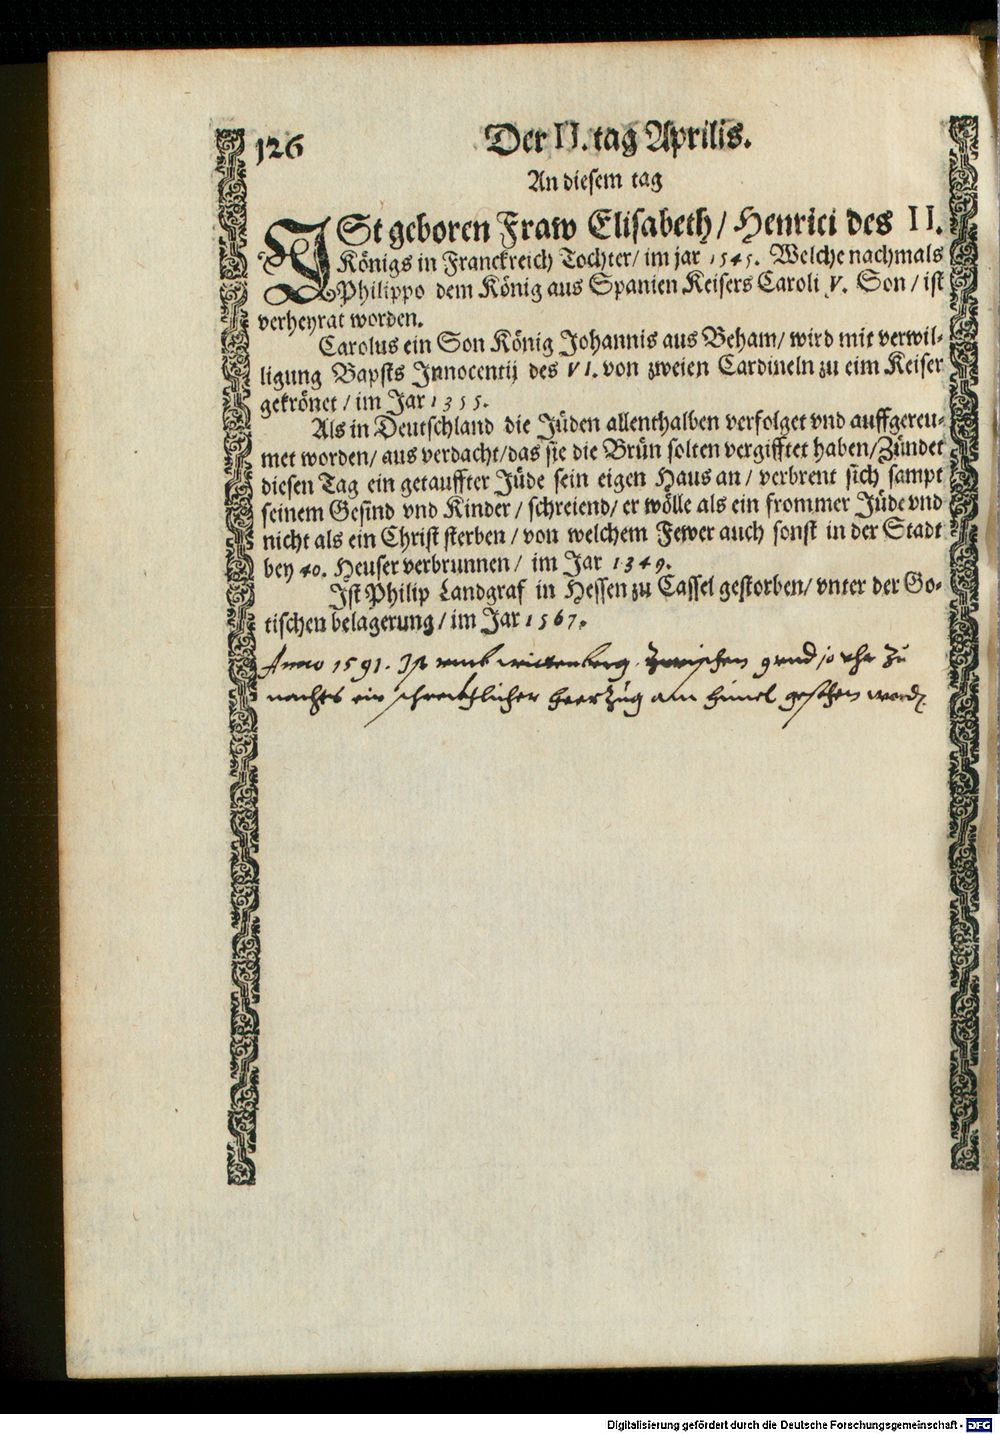 126
Der II. tag Aprilis.
An diesem tag
ISt geboren Fraw Elisabeth / Henrici des II.
Königs in Franckreich Tochter / im jar 1545. Welche nachmals
Philippo dem König aus Spanien Keisers Caroli V. Son / ist
verheyrat worden.
Carolus ein Son König Johannis aus Beham / wird mit verwil-
ligung Bapsts Innocentij des VI. von zweien Cardineln zu eim Keiser
gekrönet / im Jar 1355.
Als in Deutschland die Jüden allenthalben verfolget vnd auffgereu-
met worden / aus verdacht / das sie die Brün solten vergifftet haben / Zündet
diesen Tag ein getauffter Jüde sein eigen Haus an / verbrent sich sampt
seinem Gesind vnd Kinder / schreiend / er wölle als ein frommer Jüde vnd
nicht als ein Christ sterben / von welchem Fewer auch sonst in der Stadt
bey 40. Heuser verbrunnen / im Jar 1349.
Ist Philip Landgraf in Hessen zu Cassel gestorben / vnter der Go-
tischen belagerung / im Jar 1567.
Anno 1591. Ist vmb wittenberg. Zwischen 9 vnd 10 vhr Zu
nachts ein schrecklicher heerZug am himel gesehen word
Digitalisierung gefördert durch die Deutsche Forschungsgemeinschaft - DFG